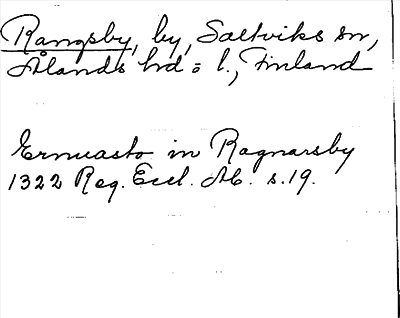 Rangsby, by, Saltviks sn,
Ålands hd o l., Finland
Ernuasto in Ragnarsby
1322 Reg. Eccl. Ab. s.19.